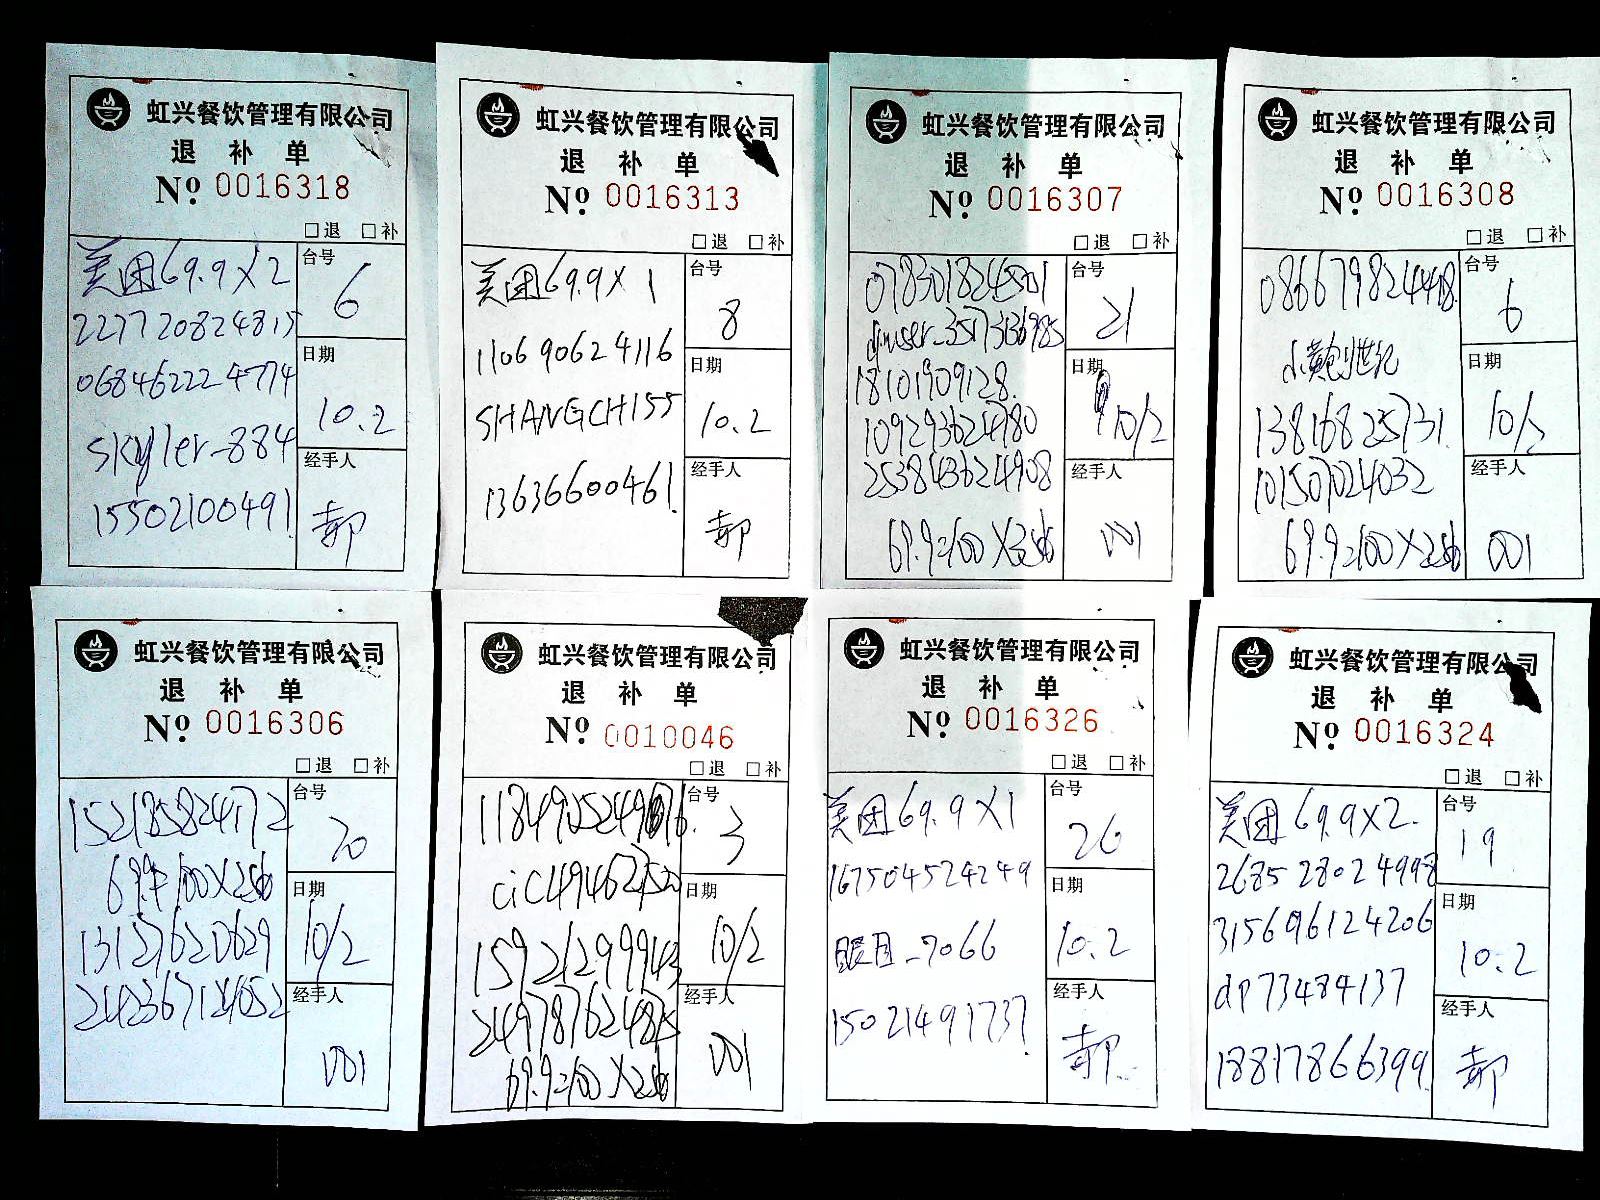 虹兴餐饮管理有限公司
退 补 单
No. 0016318
□退 □补
美团69.9×2
227720824815
068462224774
skyller-884
15502100491
台号
6
日期
10.2
经手人
郝
虹兴餐饮管理有限公司
退 补 单
No. 0016313
□退 □补
美团69.9×1
110690624116
SHANGCH155
13636600461
台号
8
日期
10.2
经手人
郝
虹兴餐饮管理有限公司
退 补 单
No. 0016307
□退 □补
078301824501
18101909128.
109293624980
253843624908
69.9=100×3
台号
21
日期
10/2
经手人
001
虹兴餐饮管理有限公司
退 补 单
No. 0016308
□退 □补
13816825731
101507024032
69.9=100×2
台号
6
日期
10/2
经手人
001
虹兴餐饮管理有限公司
退 补 单
No. 0016306
□退 □补
152185824172
69.9=100×2
13127620629
242367124052
台号
20
日期
10/2
经手人
001
虹兴餐饮管理有限公司
退 补 单
No. 0010046
□退 □补
15921299943
249787624815
69.9=100×2
台号
3
日期
10/2
经手人
001
虹兴餐饮管理有限公司
退 补 单
No. 0016326
□退 □补
美团69.9×1
167504524249
眼目-7066
15021491737
台号
26
日期
10.2
经手人
郝
虹兴餐饮管理有限公司
退 补 单
No. 0016324
□退 □补
美团69.9×2.
268528024998
315696124206
dp73484137
18817866399
台号
19
日期
10.2
经手人
郝